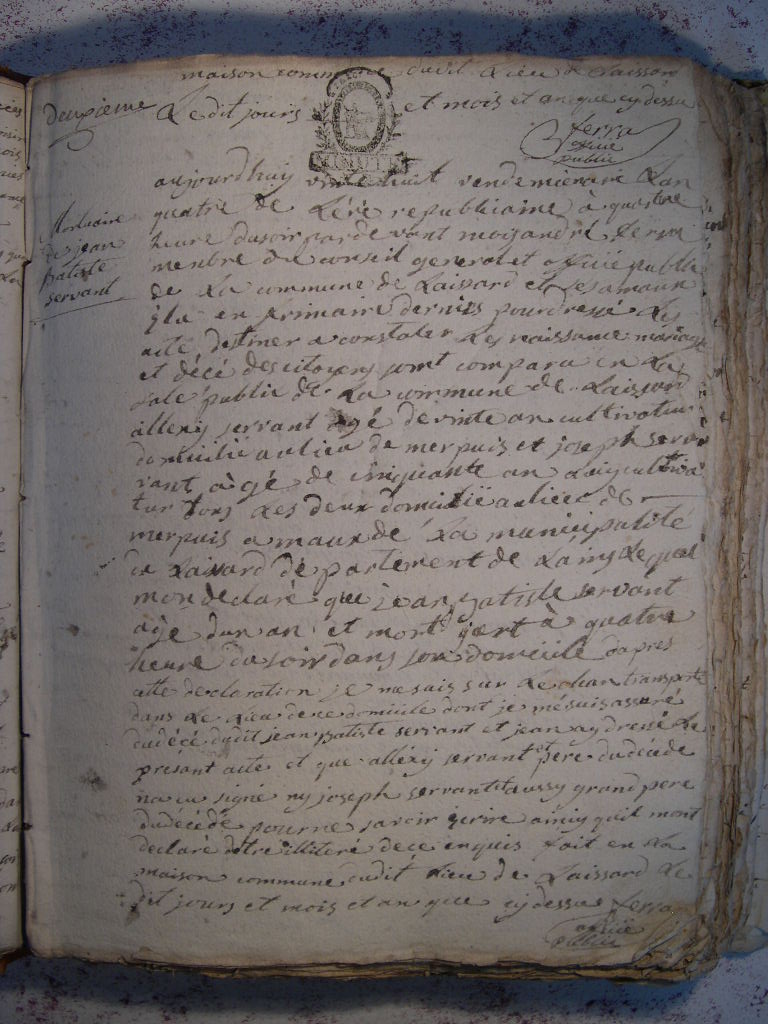 maison commune dudit Lieu de Laissard
deuxieme
Le dit jours et mois et anque cy dessu
ferra
officie
public
MINUTE
Mortuaire
de jean
Batiste
servant
aujourdhuy vinte huit vendemieraire Lan
quatre de Léré republicaine à quattre
heure dusoir pardevant moy andré ferra
menbre du conseil generol et officié public
de La commune de Laissard et Les amaux
éla en primaire dernies pour dressé Les
acte destiner a constater Les naissance mariage
et décé descitoyens sont comparu en La
sale public de La commune de Laissard
allexy servant agé devinte an cultivateur
domicilié aulieu de merpuis et joseph ser
vant àgé de cinquante an Aussy cultiva
tur tous Les deux domicilié aulieu de
merpuis amaux de La municipalité
de Laissard département de Lain Lequel
mon declaré que jean Batiste servant
age dun an et mort à quatre
heure du soir dans son domicile dapres
cette decloration je me suis sur Le chan transporte
dans Le Lieu dece domicile dont je mesuis assuré
dudécé dudit jean Batiste servant et jean ay dressé Le
presant acte et que alléxy servant pere dudecede
na cu signé ny joseph servant aussy grand pere
dudecédé pourne savoir écrire ainsy quil mont
declaré dètre illiteré dece enquis fait en La
maison commune dudit Lieu de Laissard Le
dit jours et mois et an que cy dessus ferra
officié
public